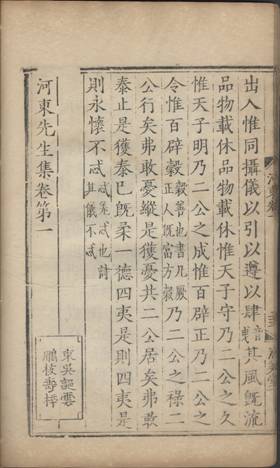 出入惟同攝儀以引以遵以肆音曳其風既流
品物載休品物載休惟天子守乃二公之久
惟天子明乃二公之成惟百辟正乃二公之
令惟百辟穀穀善也書凡厥正人既富方穀乃二公之祿二
公行矣弗敢憂縱是獲憂共二公居矣弗敢
泰止是獲泰已既柔一德四夷是則四夷是
則永懷不忒忒差忒也詩其儀不忒
河東先生集卷第一
東吳郭雲
鵬校壽梓